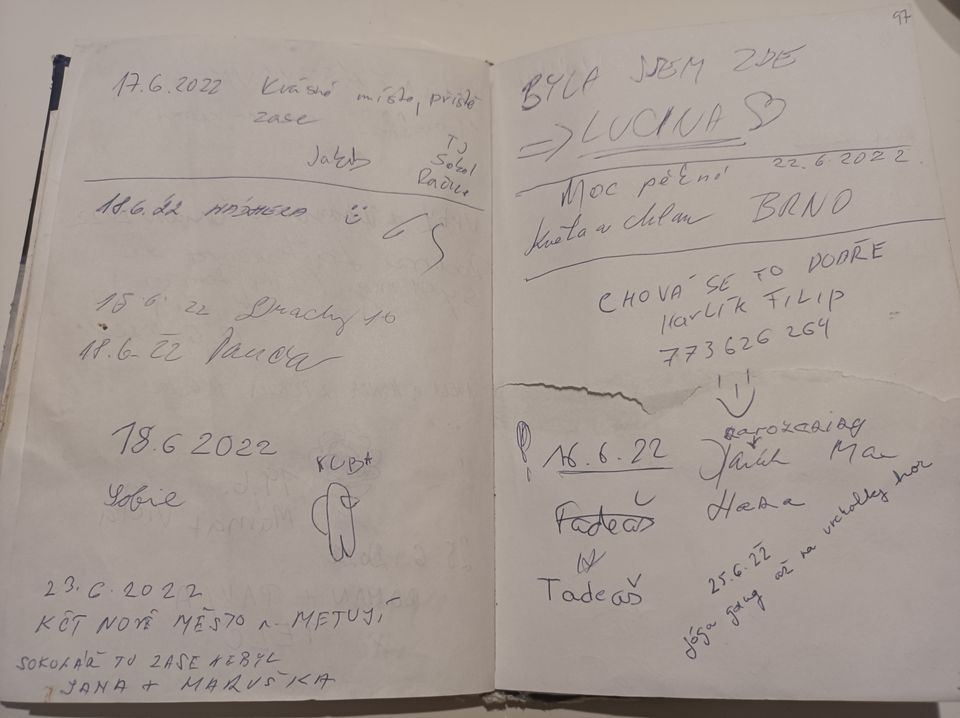 17.6.2022 Krásné místo, příště
zase
Jakub
TJ
Sokol
18.6.22
15.6.22
18.6.22 Panda
18.6 2022
KUBA
23.6.2022
KČT NOVÉ MĚSTO n. METUJÍ
SOKOLÁŘ TU ZASE NEBYL
JANA + MARUŠKA
97
BYLA JSEM ZDE
=> LUCINA
22.6.2022
Moc pěkné
Květa a chlan BRNO
CHOVÁ SE TO DOBŘE
Havlík FILIP
773 626 264
16.6.22
Tadeáš
Tadeáš
Hana
25.6.22
Jóga gang až na vrcholky hor